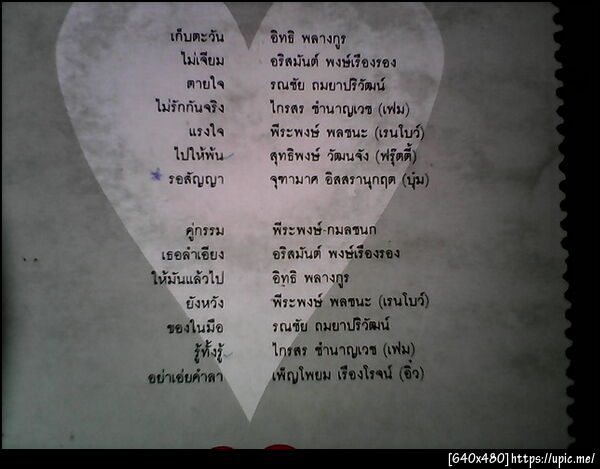 เก็บตะวัน อิทธิ พลางกูร
ไม่เจียม อริสมันต์ พงษ์เรืองรอง
ตายใจ รณชัย ถมยาปริวัฒน์
ไม่รักกันจริง ไกรสร ชำนาญเวช (เฟม)
แรงใจ พีระพงษ์ พลชนะ (เรนโบว์)
ไปให้พ้น สุทธิพงษ์ วัฒนจัง (ฟรุ๊ตตี้)
* รอสัญญา จุฑามาศ อิสสรานุกฤต (บุ๋ม)
คู่กรรม พีระพงษ์-กมลชนก
เธอลำเอียง อริสมันต์ พงษ์เรืองรอง
ให้มันแล้วไป อิทธิ พลางกูร
ยังหวัง พีระพงษ์ พลชนะ (เรนโบว์)
ของในมือ รณชัย ถมยาปริวัฒน์
รู้ทั้งรู้ ไกรสร ชำนาญเวช (เฟม)
อย่าเอ่ยคำลา เพ็ญโพยม เรืองโรจน์ (อิ๋ว)
[640x480]https://upic.me/